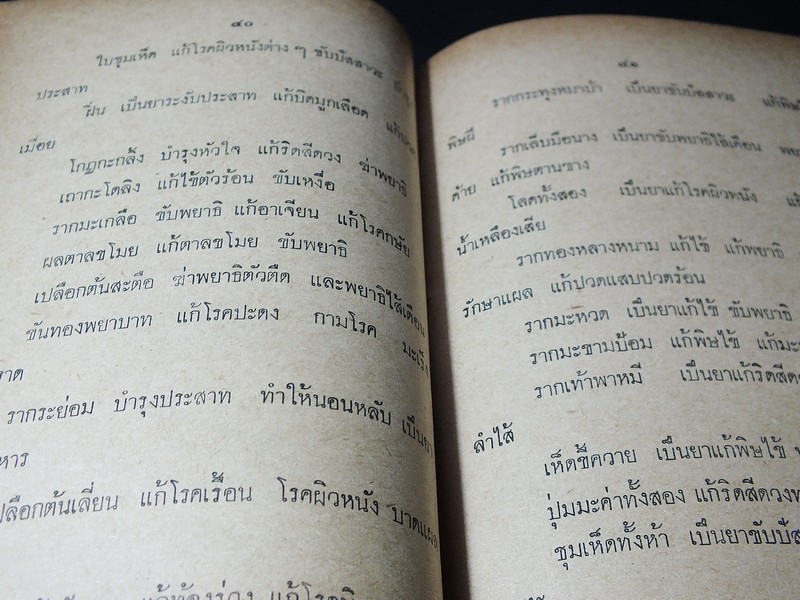 ๔๐
ใบชุมเห็ด แก้โรคผิวหนังต่าง ๆ ขับปัสสาวะ
ประสาท
ฝิ่น เป็นยาระงับประสาท แก้บิดมูกเลือด
เมื่อย
โกฎกะกลิ้ง บำรุงหัวใจ แก้ริดสีดวง ฆ่าพยาธิ
เถากะไดลิง แก้ไข้ตัวร้อน ขับเหงื่อ
รากมะเกลือ ขับพยาธิ แก้อาเจียน แก้โรคกษัย
ผลตาลขโมย แก้ตาลขโมย ขับพยาธิ
เปลือกต้นสะตือ ฆ่าพยาธิตัวตืด และพยาธิไส้เดือน
ขันทองพยาบาท แก้โรคปะดง กามโรค มะเร็ง
ราด
รากระย่อม บำรุงประสาท ทำให้นอนหลับ เป็นยา
หาร
ปลือกต้นเลี่ยน แก้โรคเรื้อน โรคผิวหนัง บาดแผล
แก้ท้องร่วง แก้โรค
๔๑
รากกระทุงหมาบ้า เป็นยาขับปัสสาวะ แก้
พิษฝี
รากเล็บมือนาง เป็นยาขับพยาธิไส้เดือน
ด้าย แก้พิษตานซาง
โลดทั้งสอง เป็นยาแก้โรคผิวหนัง
น้ำเหลืองเสีย
รากทองหลางหนาม แก้ไข้ แก้พยาธิ
รักษาแผล แก้ปวดแสบปวดร้อน
รากมะหวด เป็นยาแก้ไข้ ขับพยาธิ
รากมะขามป้อม แก้พิษไข้ แก้มะ
รากเท้าพาหมี เป็นยาแก้ริดสีด
ลำไส้
เห็ดขี้ควาย เป็นยาแก้พิษไข้
ปุ่มมะค่าทั้งสอง แก้ริดสีดวง
ชุมเห็ดทั้งห้า เป็นยาขับปัส